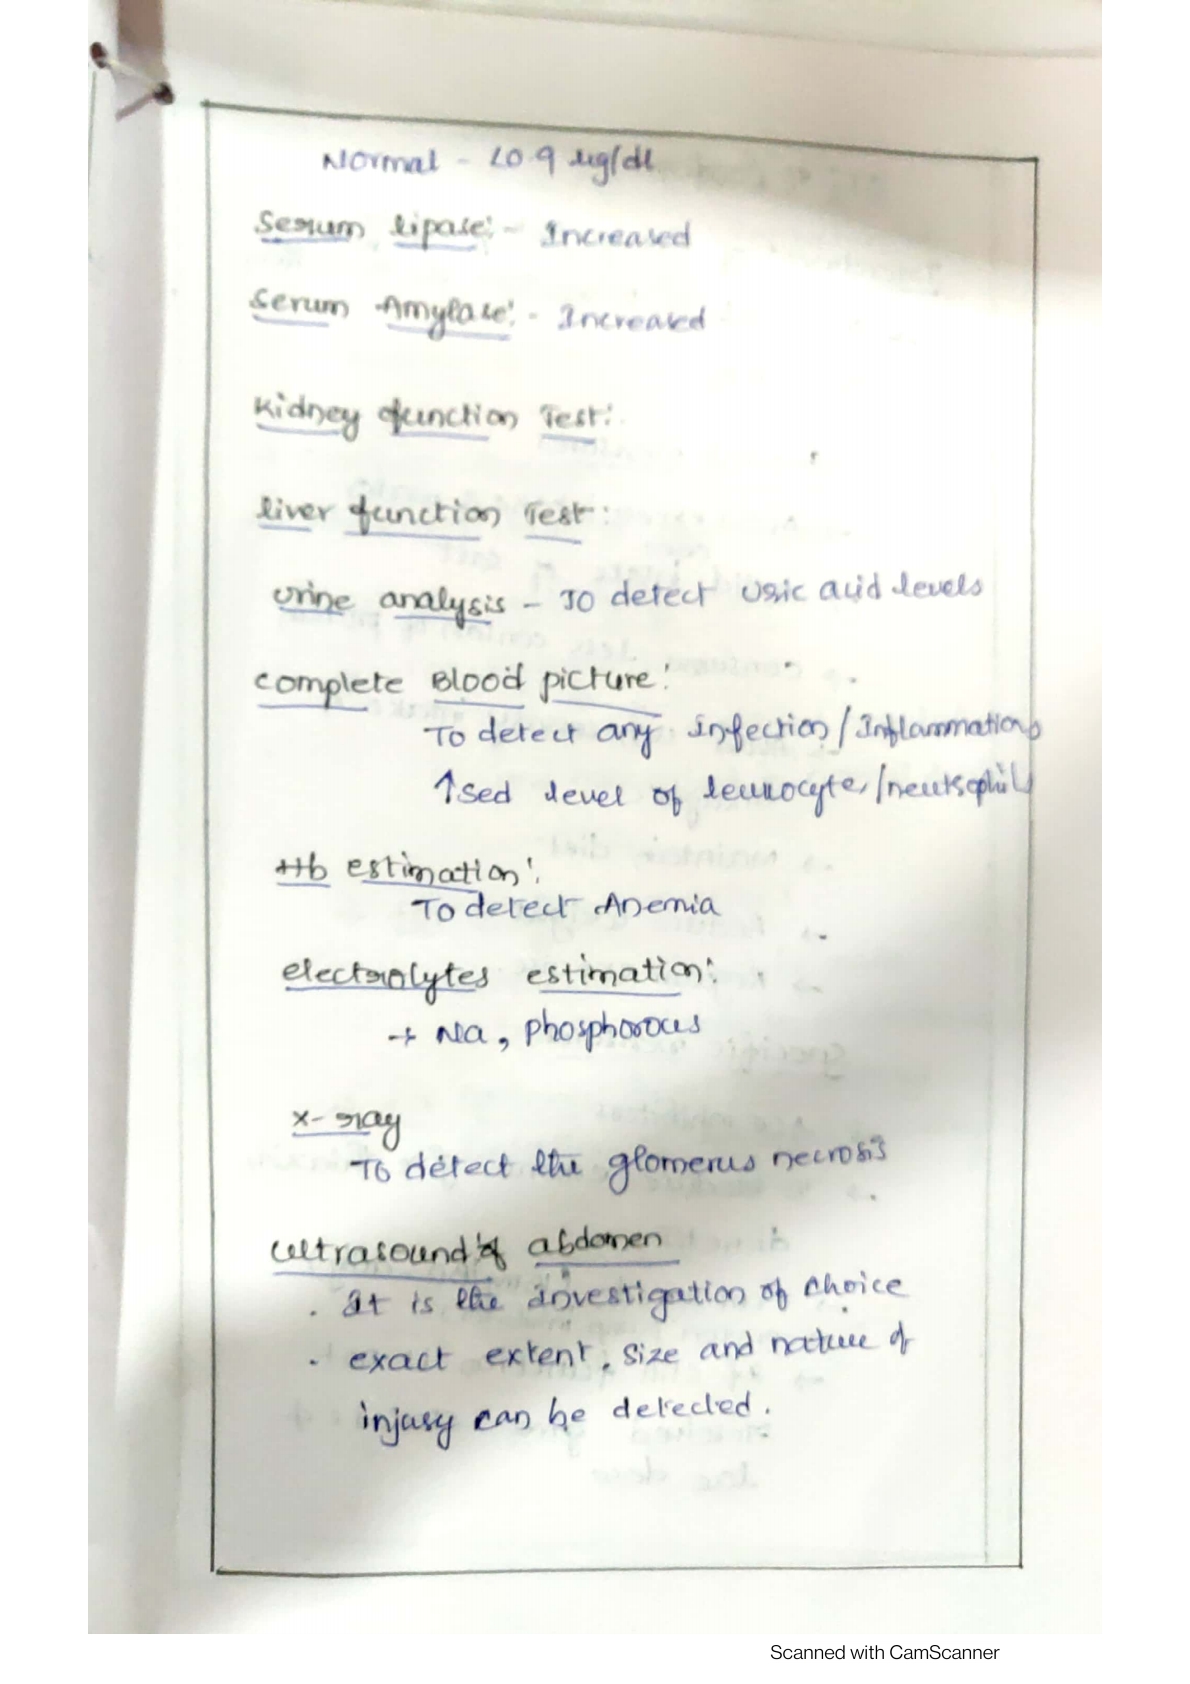 Normal - <0.9 mg/dl
Serum lipase:- Increased
Serum Amylase:- Increased
Kidney function Test:
liver function Test:
urine analysis - To detect Uric acid levels
complete Blood picture:
To detect any infection/Inflammations
↑sed level of leucocyte/neutrophils
Hb estimation:
To detect Anemia
electrolytes estimation:
→ Na, phosphorous
x-ray
To detect the glomerus necrosis
ultrasound of abdomen
. It is the investigation of choice
. exact extent, size and nature of
injury can be detected.
Scanned with CamScanner